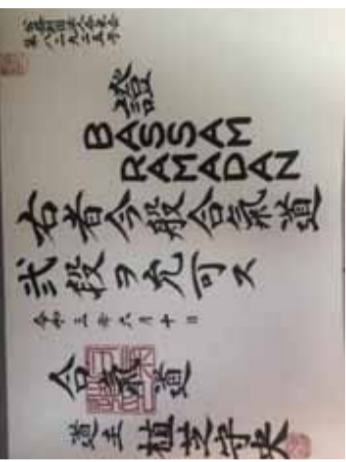 證
BASSAM
RAMADAN
右者今般合氣道
弐段ヲ允可ス
令和三年六月十日
合氣道
道主 植芝守央